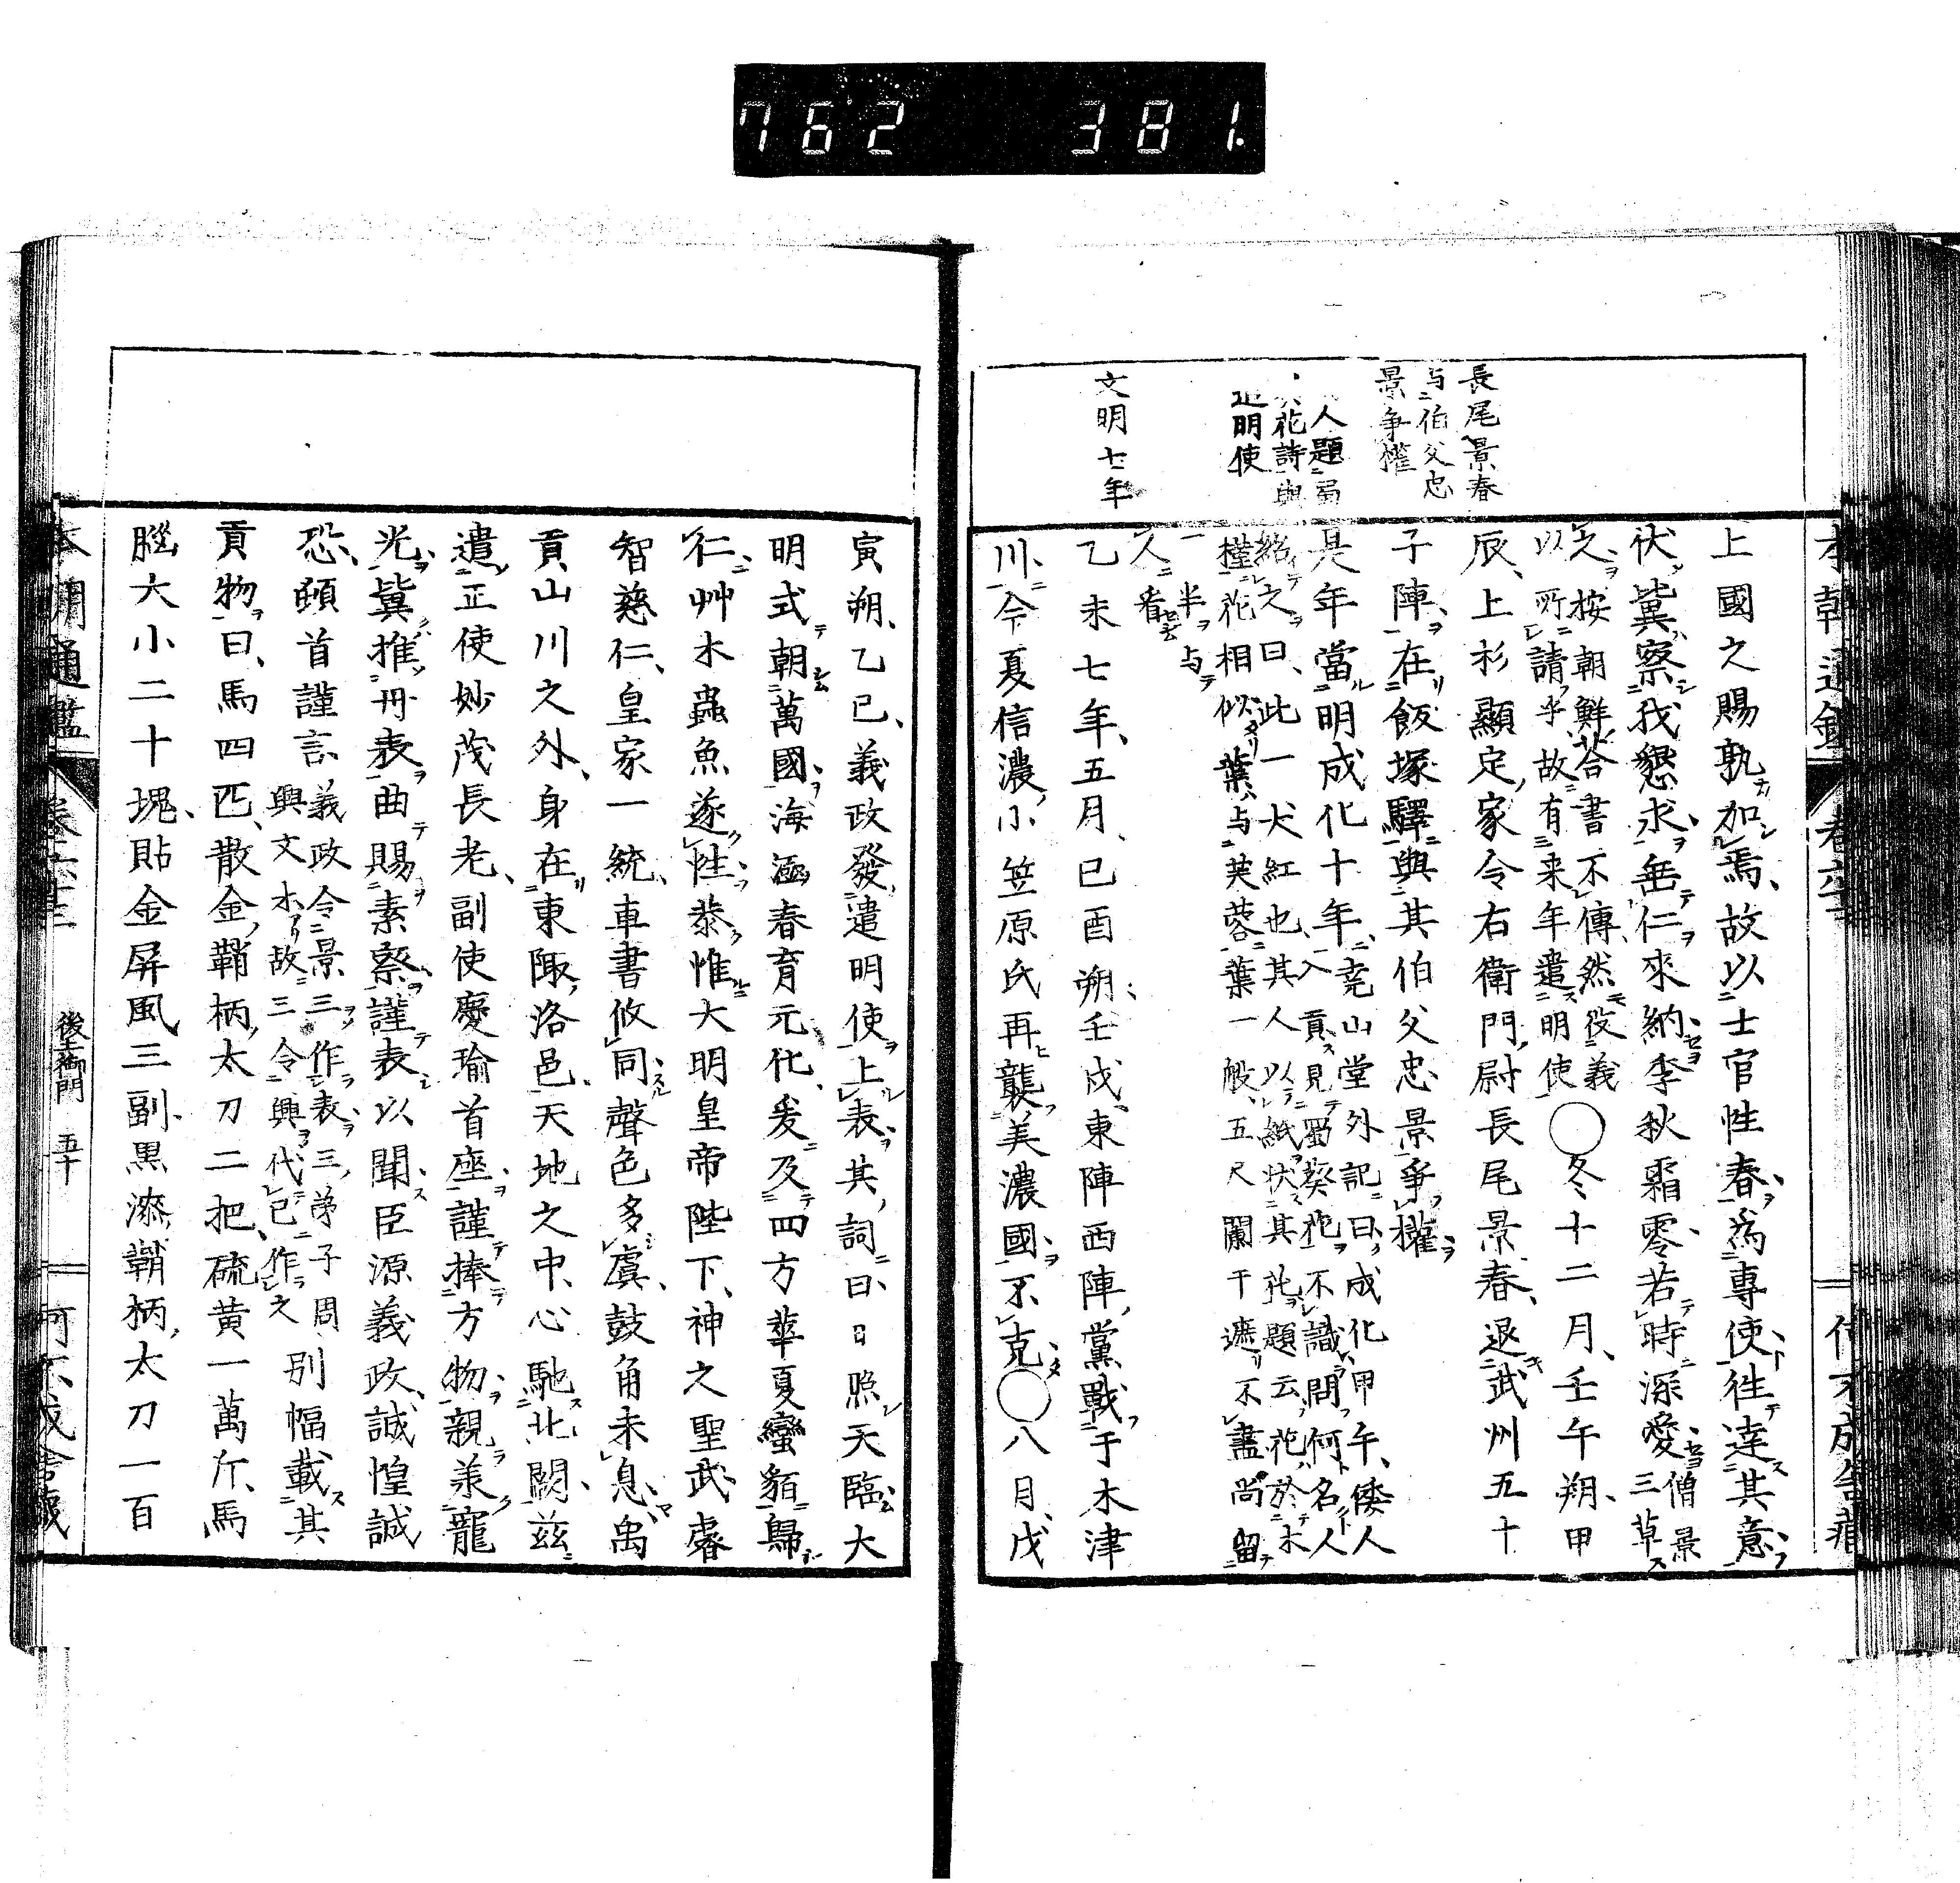 762 381.
長尾景春
与伯父忠
景爭權
人題蜀
花詩與
明使
文明七年
上國之賜孰加焉、故以士官性春為專使、往達其意
伏冀察我懇求、缶仁來納李秋霜零、若時深愛僧景三草
之按朝鮮荅書不傳然役義
以所請乎故有来年遣明使
○冬十二月、壬午朔、甲
辰、上杉顯定、家令右衛門尉長尾景春、退武州五十
子陣、在飯塚驛與其伯父忠景爭權
是年當明成化十年、尭山堂外記曰、成化甲午、倭人
入貢見蜀葵花不識問何名人
紿之曰、此一犬紅也、其人以紙状其花題云、花於木
槿花相似葉与芙蓉葉一般、五尺闌干遮不盡尚留
一半与
人看
乙未七年、五月、己酉朔、壬戌、東陣西陣、黨戰于木津
川、今夏信濃、小笠原氏再襲美濃國、不克○八月、戊
寅朔、乙巳、義政發遣明使、上表其詞曰、日照天臨大
明式朝萬國、海涵春育元化、爰及四方華夏蠻貊歸
仁、艸木蟲魚遂性、恭惟大明皇帝陛下、神之聖武、睿
智慈仁、皇家一統、車書攸同聲色多虞、鼓角未息、禹
貢山川之外、身在東陬、洛邑、天地之中、心馳北闕、茲
遣正使妙茂長老、副使慶瑜首座、謹捧方物、親羕寵
光、冀推冊表、曲賜素察、謹表以聞、臣源義政、誠惶誠
恐、頓首謹言、義政令景三作表三弟子周
興文木故三令興代已作之
別幅載其
貢物曰、馬四匹、散金鞘柄、太刀二把、硫黄一萬斤、馬
腦大小二十塊、貼金屏風三副、黒漆鞘柄、太刀一百
本朝通鑑
後土御門 五十